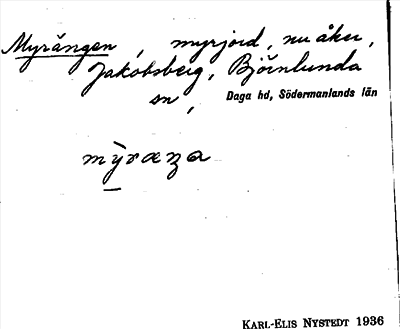 Myrängen, myrjord, nu åker,
Jakobsberg, Björnlunda
sn, Daga hd, Södermanlands län
mỳræṉa
KARL-ELIS NYSTEDT 1936